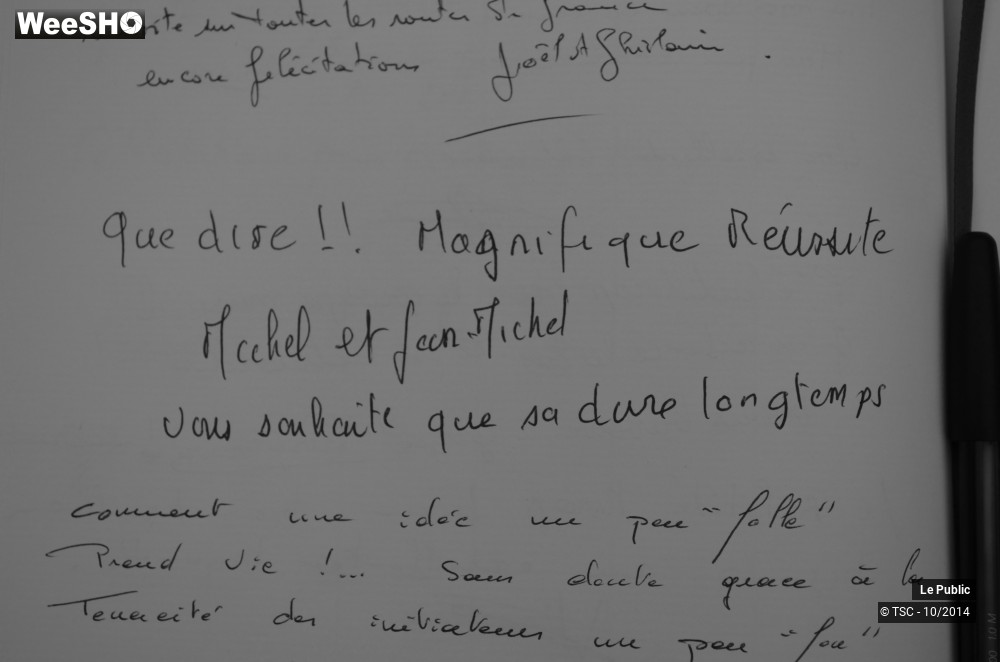 WeeSHO
sur toutes les routes de france
encore felicitations Joël et Ghislain.
Que dire !! Magnifique Réussite
Michel et Jean-Michel
vous souhaite que sa dure longtemps
comment une idée un peu "folle"
Prend vie !... Sans doute grace à la
Tenacité des initiateurs un peu "fou"
Le Public
© TSC - 10/2014